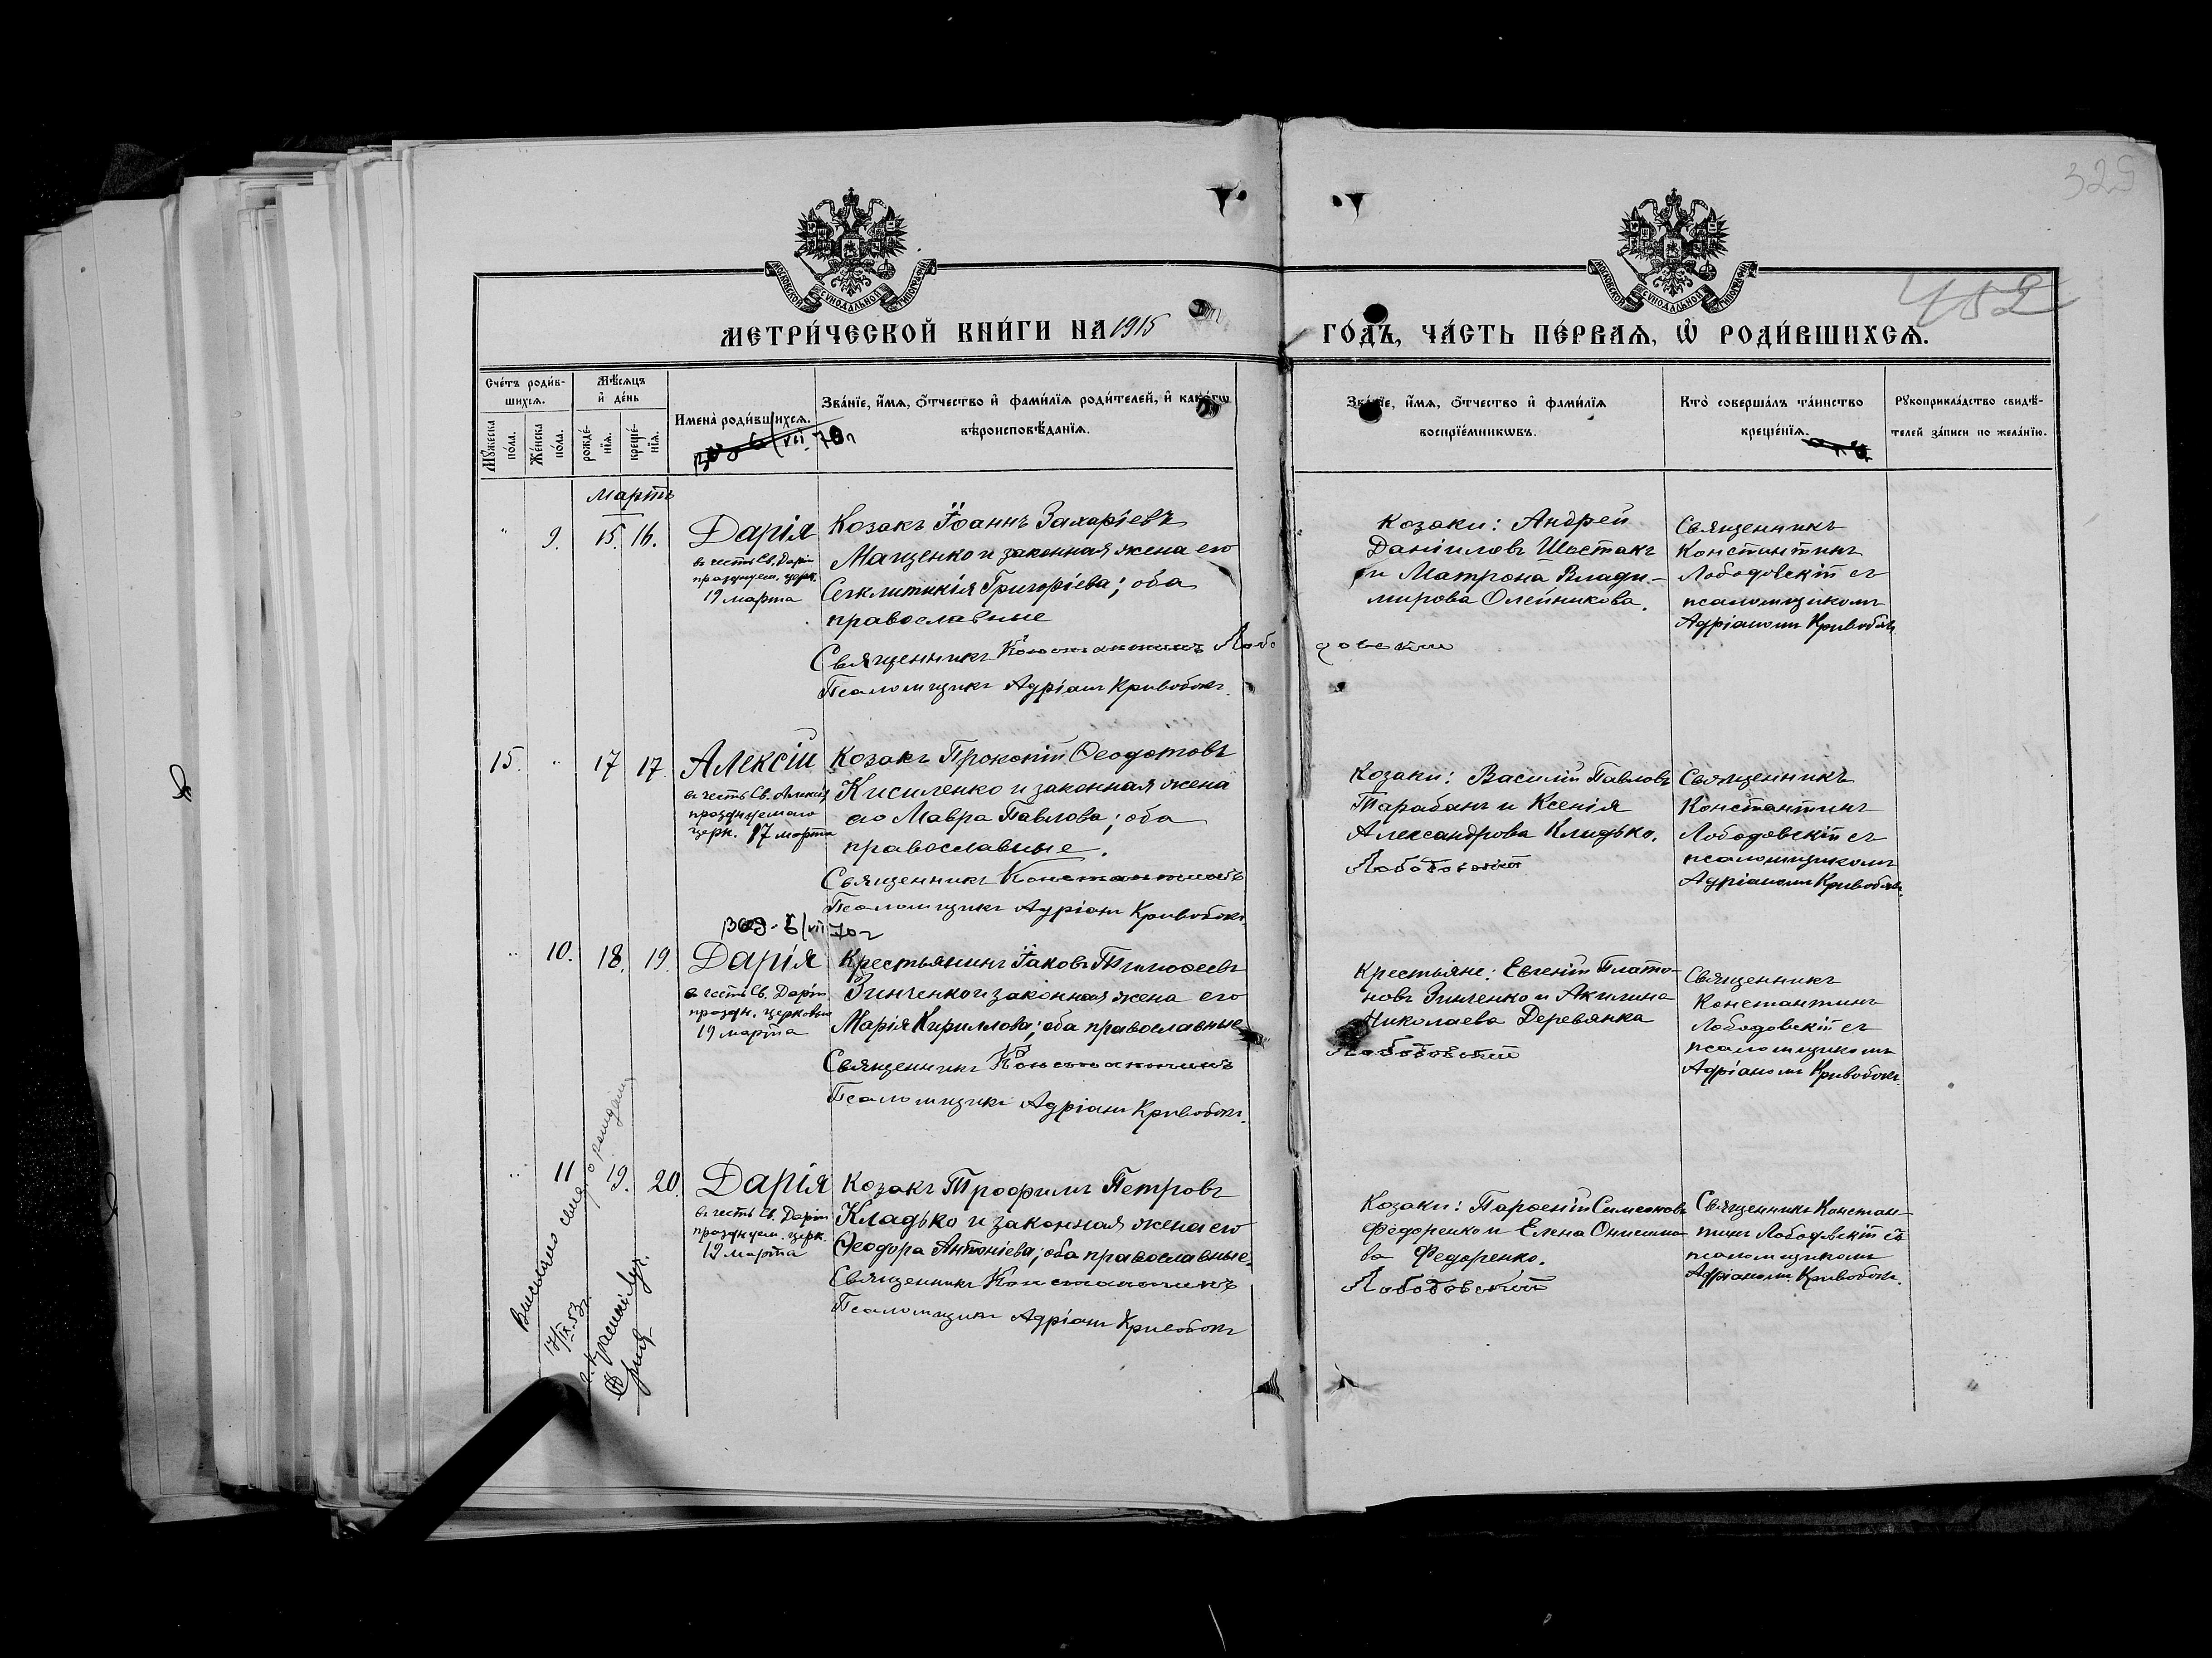 325
452
МОСКОВСКОЙ СѴНОДАЛЬНОЙ ТИПОГРАФІИ
МОСКОВСКОЙ СѴНОДАЛЬНОЙ ТИПОГРАФІИ
МЕТРИ́ЧЕСКОЙ КНИ́ГИ НА 1915 ГО́ДЪ, ЧА́СТЬ ПЕ́РВАѦ, Ѡ҆ РОДИ́ВШИХСѦ.
Сче́тъ роди́в-
шихсѧ.
Мꙋ́жеска
по́ла.
Же́нска
по́ла.
Мѣ́сѧцъ
и҆ де́нь
рожде́-
нїѧ.
креще́-
нїѧ.
Имена̀ роди́вшихсѧ.
Зва́нїе, и҆́мѧ, ѻ҆́тчество и҆ фами́лїѧ роди́телей, и҆ како́гѡ
вѣроисповѣ́данїѧ.
Зва́нїе, и҆́мѧ, ѻ҆́тчество и҆ фами́лїѧ
воспрїе́мникѡвъ.
Кто̀ соверша́лъ та́инство
креще́нїѧ.
Рꙋкоприкла́дство свидѣ́-
телей за́писи по жела́нїю.
Мартъ
" 9. 15. 16.
Дарія
въ честь Св. Даріи
празднуем. церк.
19 марта
Козакъ Іоаннъ Захаріевъ
Мащенко и законная жена его
Сегклитикія Григоріева; оба
православные
Священникъ Константинъ Лободовскій
Псаломщикъ Адріанъ Кривобокъ.
Козаки: Андрей
Даніиловъ Шостакъ
и Матрона Влади-
мирова Олейникова.
Священникъ
Константинъ
Лободовскій съ
псаломщикомъ
Адріаномъ Кривобок.
15. " 17 17.
Алексій
въ честь Св. Алексія
празднуемаго
церк. 17 марта
Козакъ Прокопій Ѳеодотовъ
Кисиленко и законная жена
его Мавра Павлова; оба
православные.
Священникъ Константинъ
Псаломщикъ Адріанъ Кривобокъ
Козаки: Василій Павловъ
Тарабанъ и Ксенія
Александрова Кладько.
Лободовскій
Священникъ
Константинъ
Лободовскій съ
псаломщикомъ
Адріаномъ Кривобок.
" 10. 18. 19.
Дарія
въ честь Св. Даріи
праздн. церковью
19 марта
Крестьянинъ Іаковъ Тимоѳеевъ
Зинченко и законная жена его
Марія Кириллова; оба православные
Священникъ Константинъ
Псаломщикъ Адріанъ Кривобокъ.
Крестьяне: Евгеній Плато-
новъ Зинченко и Акилина
Николаева Деревянка
Лободовскій
Священникъ
Константинъ
Лободовскій съ
псаломщикомъ
Адріаномъ Кривобок.
" 11 19. 20.
Дарія
въ честь Св. Даріи
празднуем. церк.
19 марта
Козакъ Трофимъ Петровъ
Кладько и законная жена его
Ѳеодора Антоніева; оба православные.
Священникъ Константинъ
Псаломщикъ Адріанъ Кривобокъ
Козаки: Парѳеній Симеоновъ
Федоренко и Елена Онисимо
ва Федоренко.
Лободовскій
Священникъ Констан-
тинъ Лободовскій съ
псаломщикомъ
Адріаномъ Кривобок.
Выслано свид. о рождении
17/IX-53 г.